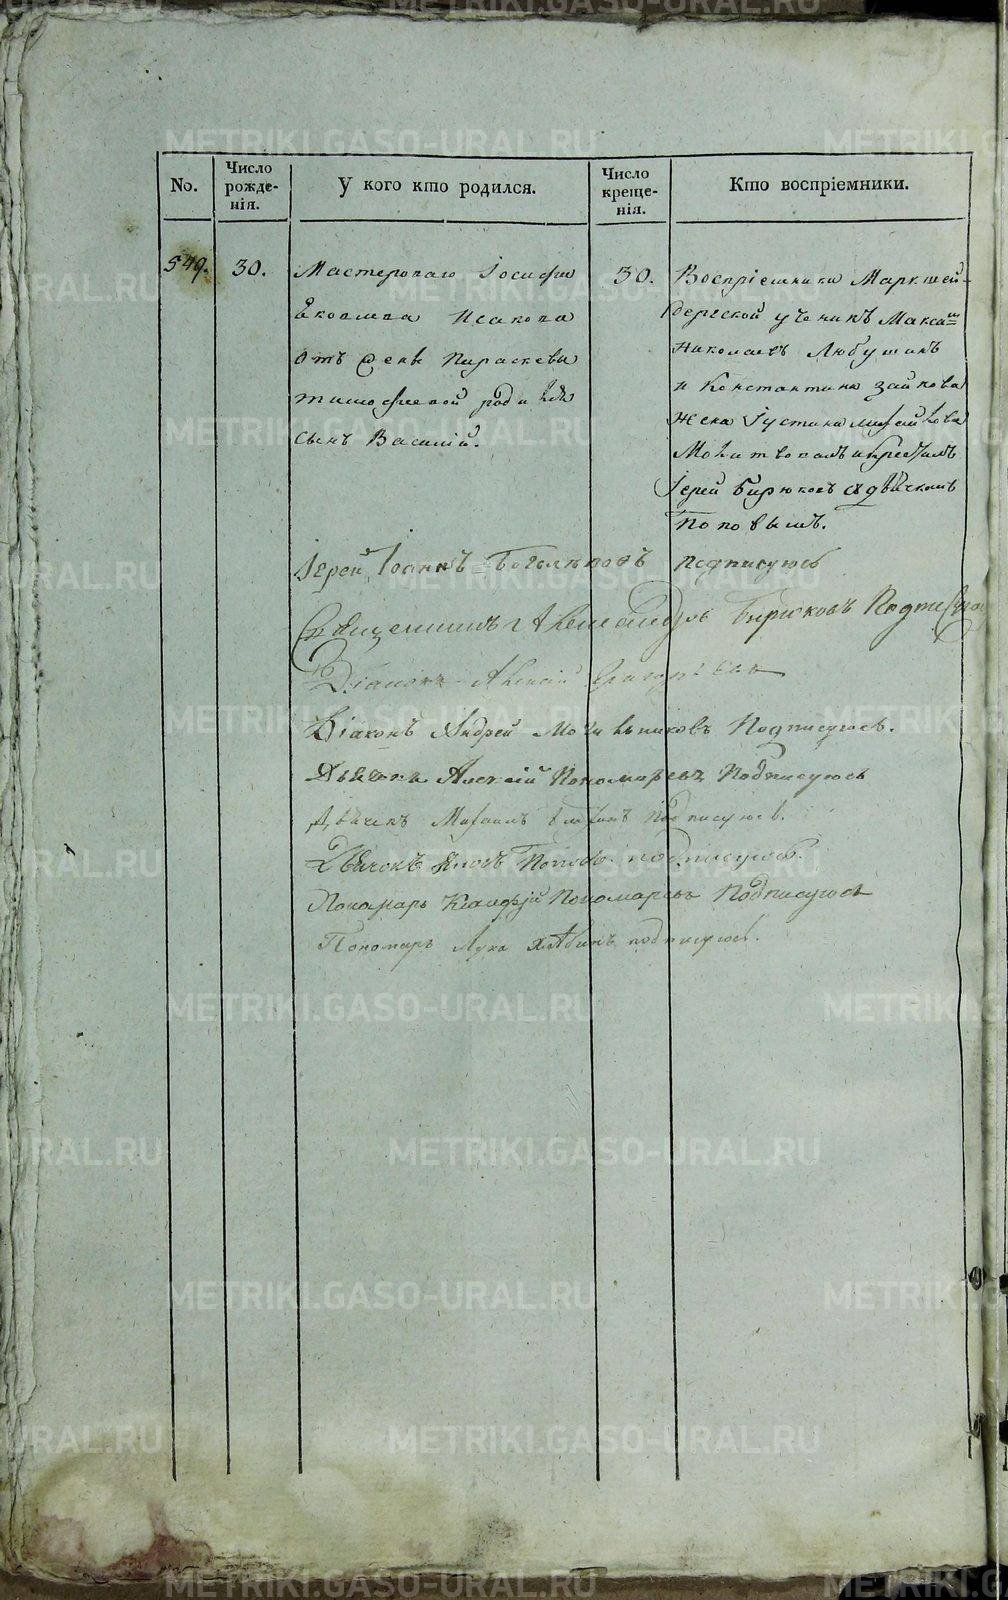 No.
Число рожде-нія.
У кого кто родился.
Число креще-нія.
Кто воспріемники.
549.
30.
Мастероваго Іосифа
Яковлева Исакова
отъ жены Параскевы
тимофеевой родился
сынъ Василій.
30.
Воспріемники Маркшей-
дерской ученикъ Макси
Николаевъ Любушинъ
и Константина зайкова
жена Іустина
Молитвовалъ и крестилъ
Іерей Бирюковъ съ дьячкомъ
Поповымъ.
Іерей Іоаннъ подписуюсь
Священникъ Александръ Бирюковъ Подписуюсь
Діаконъ Алексій
Діаконъ Андрей Подписуюсь.
Дьячокъ Алексій Пономаревъ Подписуюсь
Дьячекъ Михаилъ подписуюсь.
Дьячокъ Яковъ Поповъ подписуюсь.
Пономарь Пономаревъ Подписуюсь
Пономарь Лука подписуюсь.
METRIKI.GASO-URAL.RU